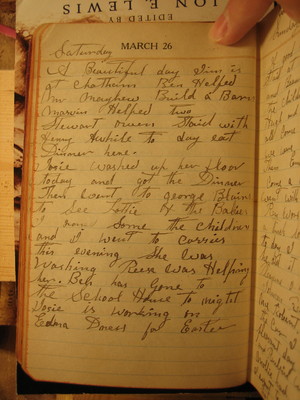 ON E. LEWIS
EDITED BY
MARCH 26
Saturday
A Beautiful day Jim is
at Chathams Ben Helped
Mr Mayhew Build a Barn
Marvin Helped two
Stewart owens Staid with
Jimy Awhile to day eat
Dinner here.
Josie Washed up her floor
today and got the Dinner
Then went to george Blains
to See Lottie & the Babies
now some the children
and I went to Carries
this evening She Was
Washing Reese Was Helping
her. Ben has gone to
the School House to night
Josie is working on
Edna Dress for Easter